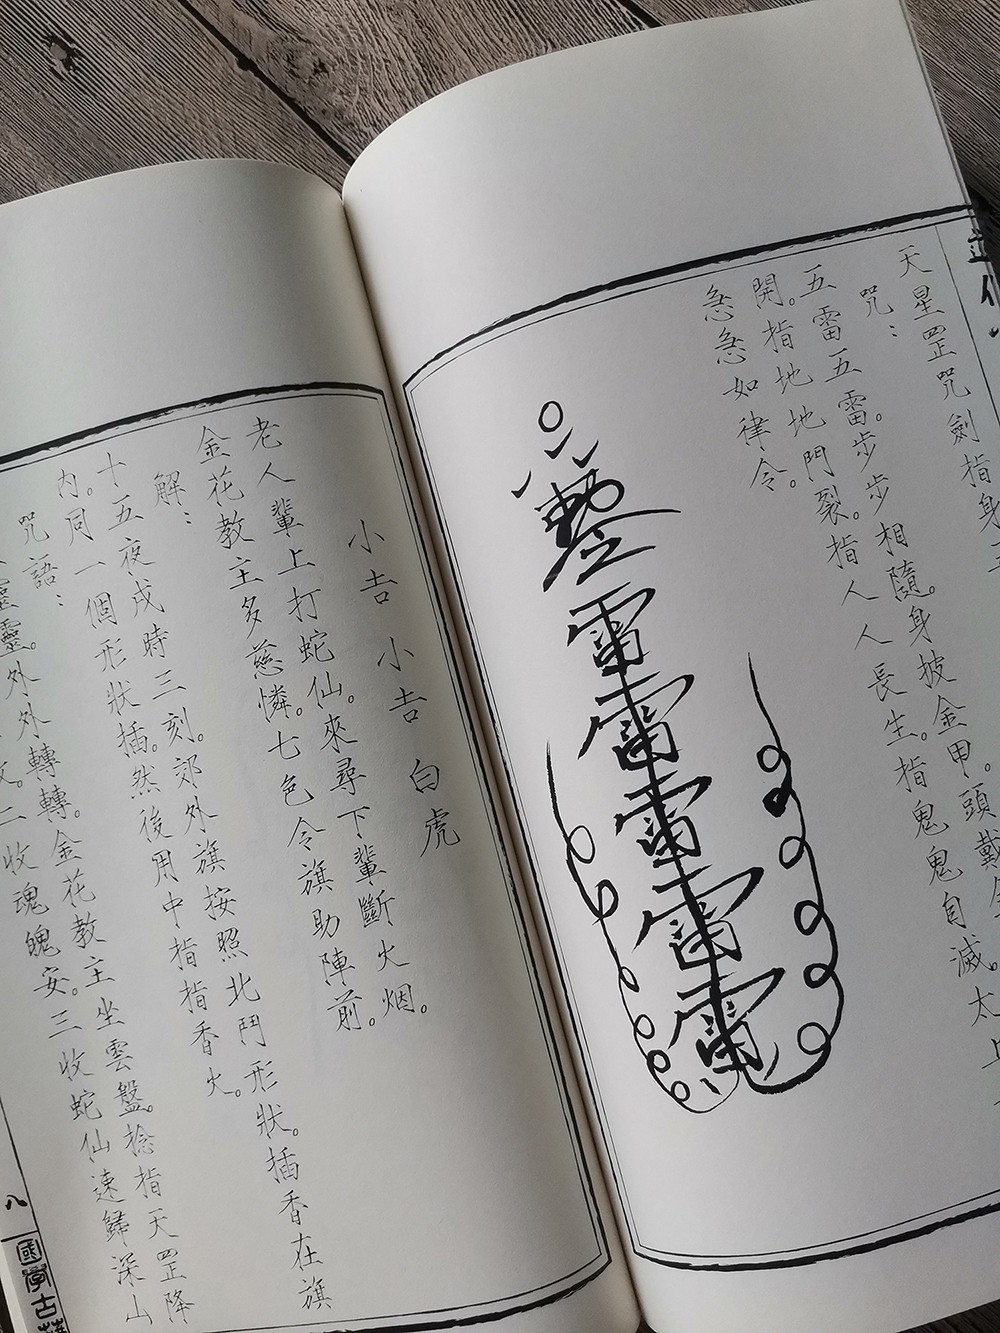 天星罡咒劍指身
咒：
五雷五雷。步步相隨。身披金甲。頭戴
開。指地地門裂。指人人長生。指鬼鬼自滅。太上
急急如律令。
雷
雷
雷
雷
雷
小吉小吉白虎
老人輩上打蛇仙。來尋下輩斷火烟。
金花教主多慈憐。七色令旗助陣前。
解：
十五夜戌時三刻。郊外旗按照北鬥形狀。插香在旗
內。同一個形狀插。然後用中指指香火。
咒語：
靈。外外轉轉。金花教主坐雲盤。捻指天罡降
二收魂魄安。三收蛇仙速歸深山
八
國學古